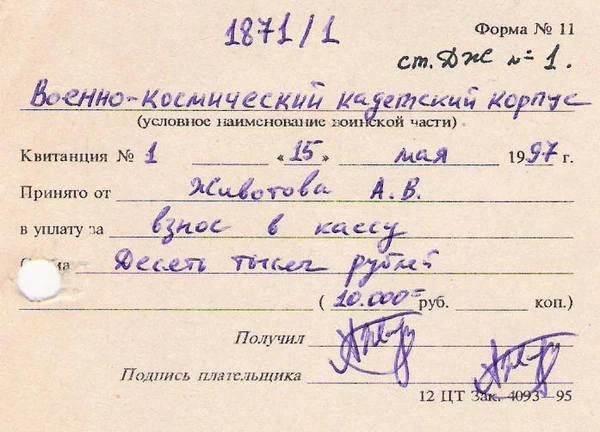 1871/1
Форма № 11
ст. ДЖ № 1.
Военно-космический кадетский корпус
(условное наименование воинской части)
Квитанция № 1 «15» мая 1997 г.
Принято от Животова А. В.
в уплату за взнос в кассу
Десеть тысеч рублей
(10.000= руб. коп.)
Получил
Подпись плательщика
12 ЦТ Зак. 4093—95